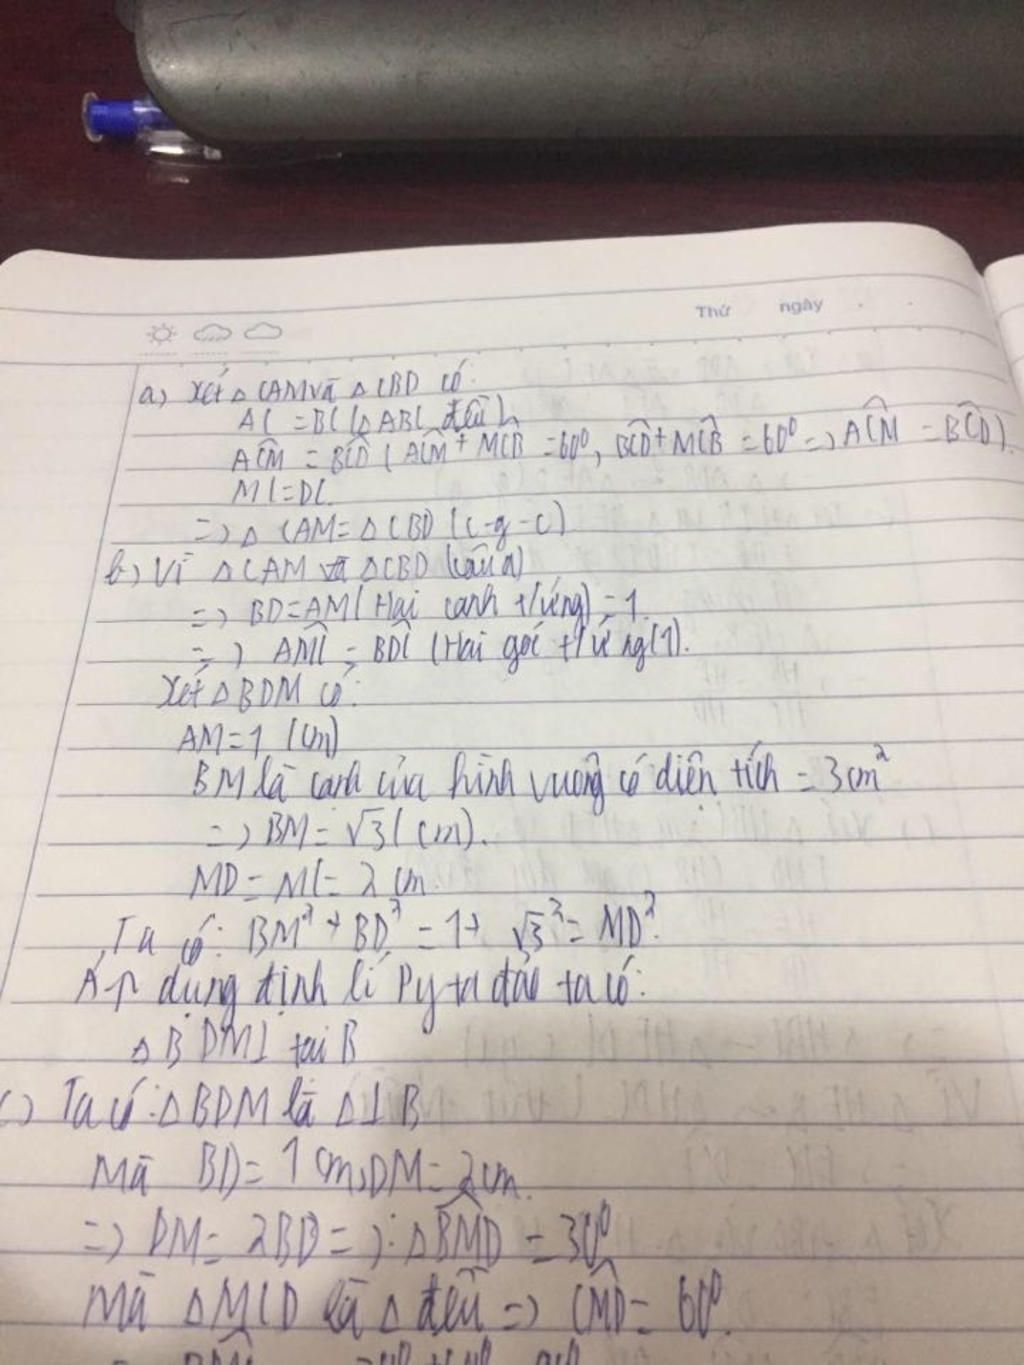 Thứ ngày
a) Xét △CAM và △CBD có:
AC = BC (△ABC đều).
AĈM = BĈD (AĈM + MĈB = 60⁰, BĈD + MĈB = 60⁰ => AĈM = BĈD).
MC = DC.
=> △CAM = △CBD (c-g-c)
b) Vì △CAM và △CBD (câu a)
=> BD = AM (Hai cạnh t/ứng) = 1
=> AM̂C = BD̂C (Hai góc t/ứng) (1).
Xét △BDM có:
AM = 1 (cm)
BM là cạnh của hình vuông có diện tích = 3cm²
=> BM = √3 (cm).
MD = MC = 2 cm.
Ta có: BM² + BD² = 1 + √3² = MD².
Áp dụng định lí Py-ta đảo ta có:
△BDM⊥ tại B
c) Ta có: △BDM là △⊥ B
Mà BD = 1 cm, DM = 2cm.
=> DM = 2BD => △BM̂D = 30⁰
Mà △MCD là △ đều => CM̂D = 60⁰.